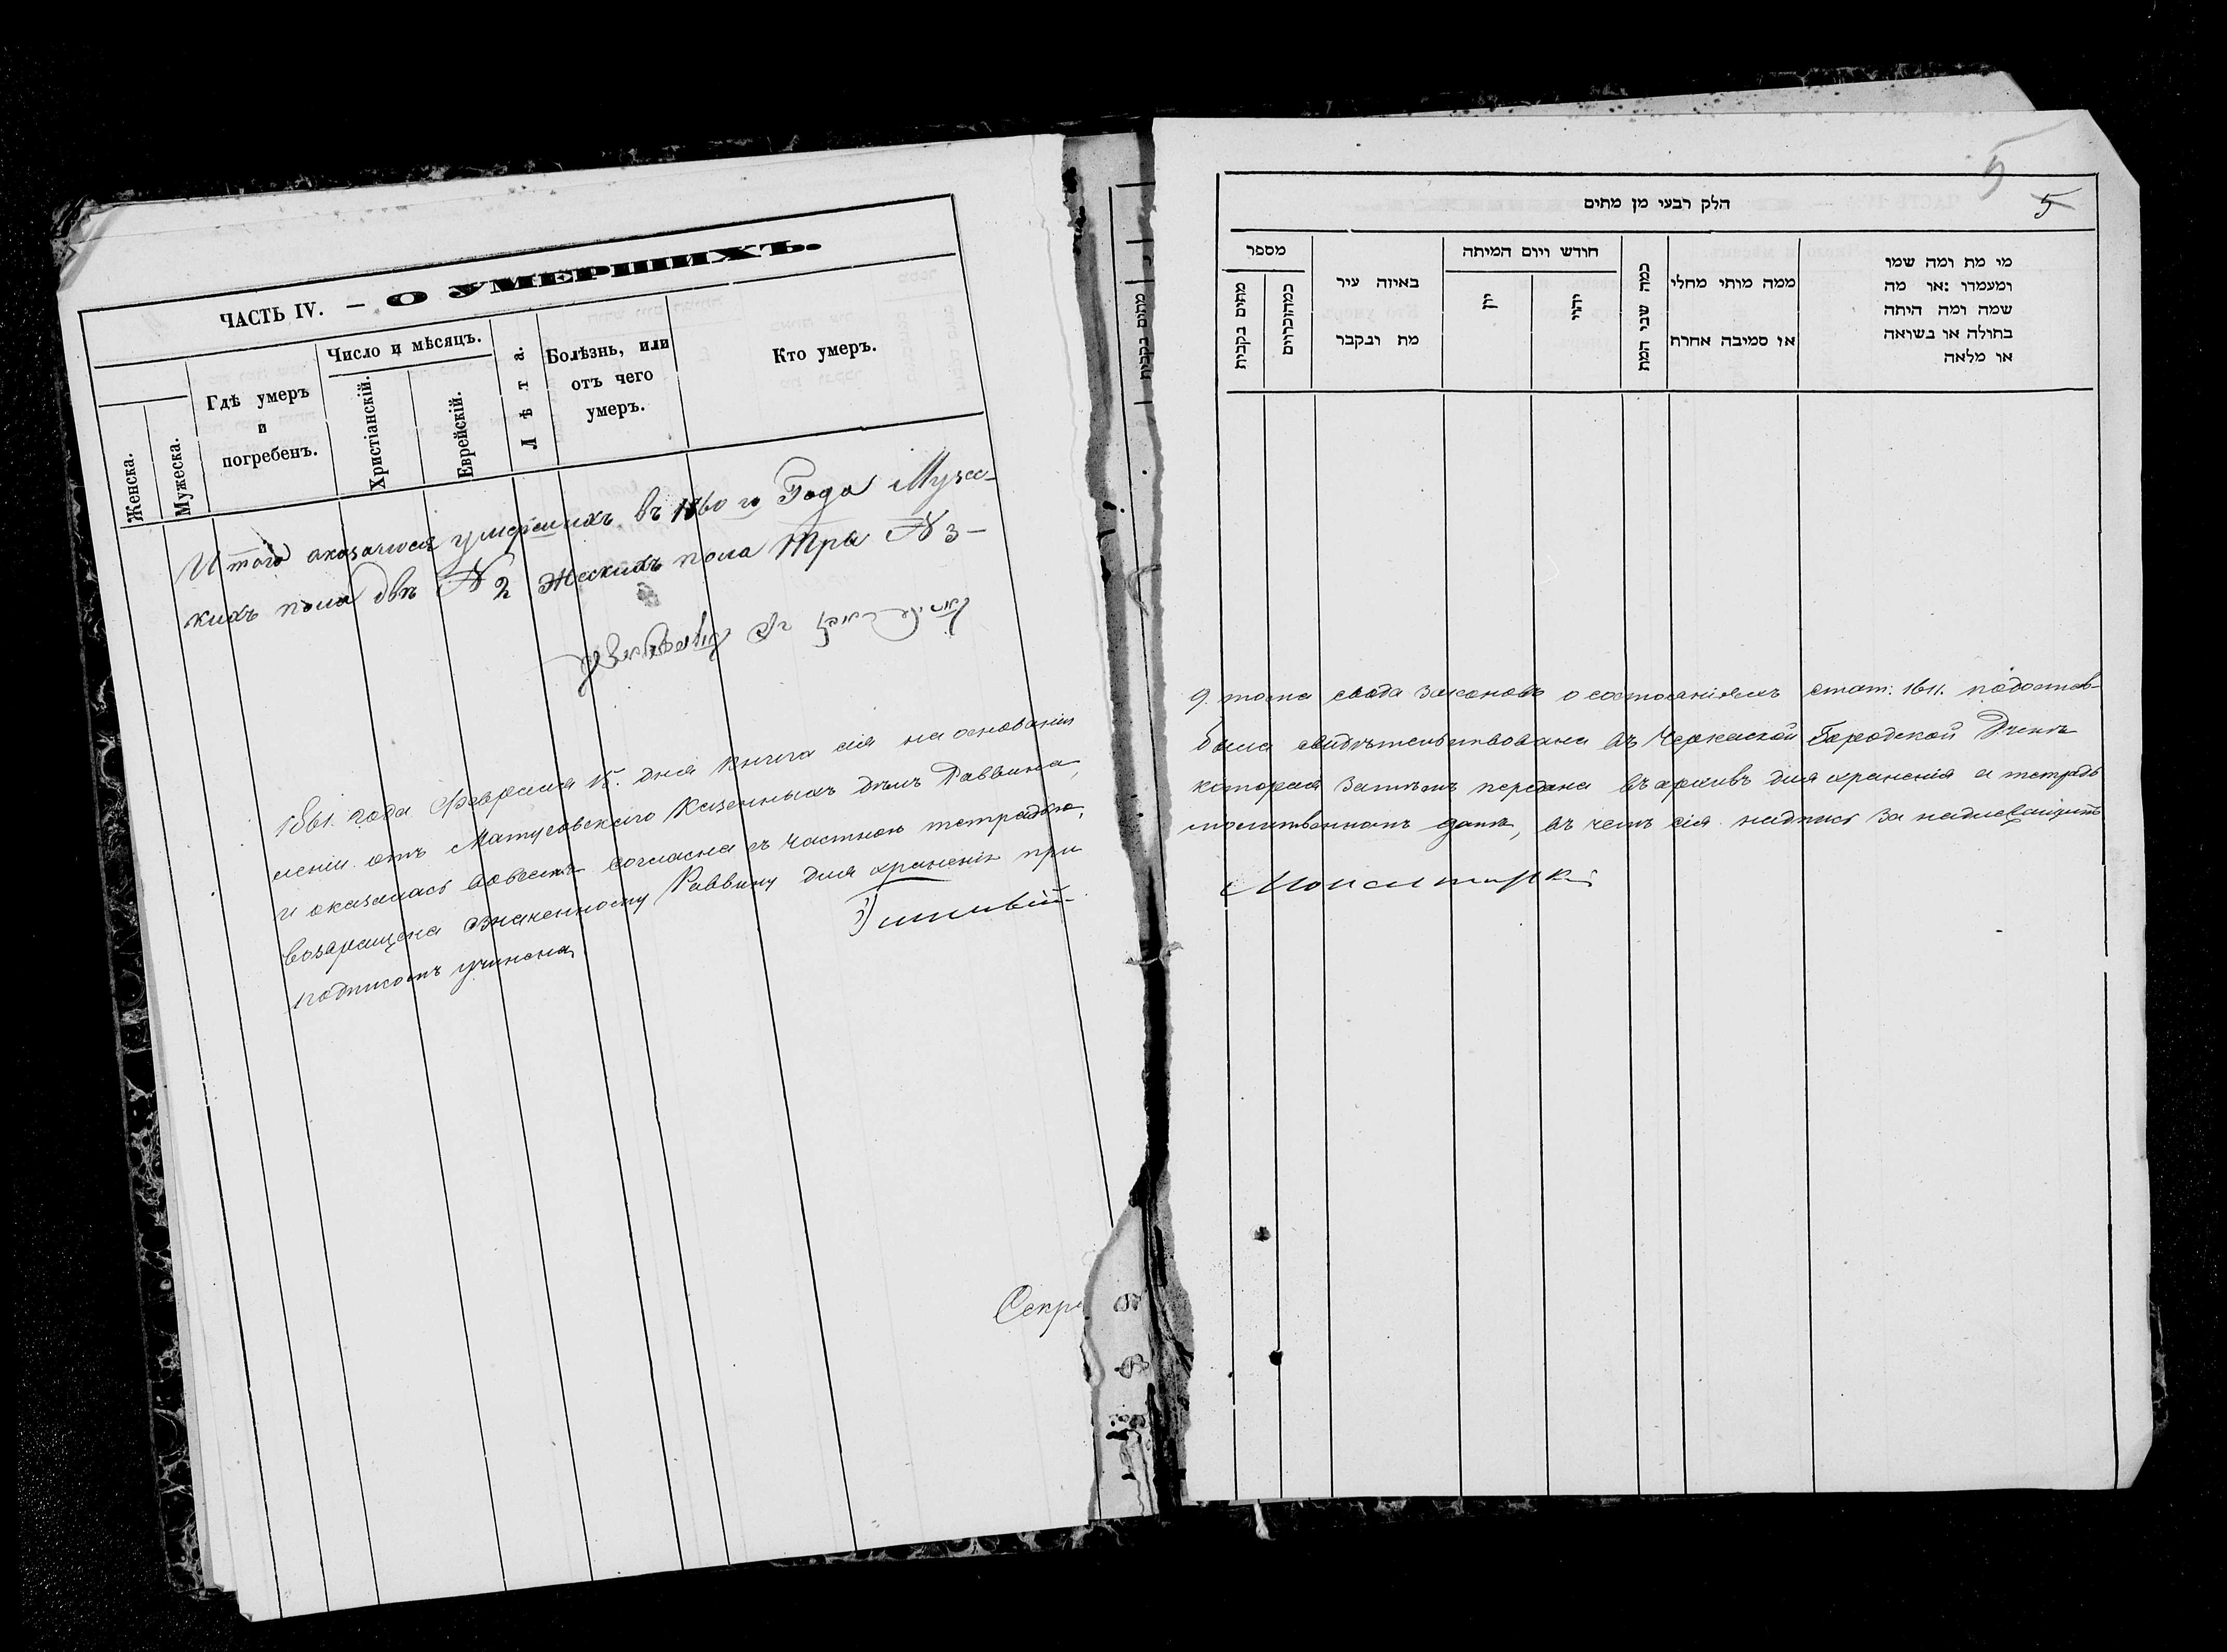 ЧАСТЬ IV. — О УМЕРШИХЪ.
Женска.
Мужеска.
Гдѣ умеръ
и
погребенъ.
Число и мѣсяцъ.
Христіанскій.
Еврейскій.
Лѣта.
Болѣзнь, или
отъ чего
умеръ.
Кто умеръ.
Итого оказалося умершихъ въ 1860 го Года Мужес-
кихъ пола двѣ № 2 Жескихъ пола три № 3 —
1861. года Февраля 15. дня книга сія на основаніи
леніи отъ Матусовского Казенныхъ дѣлъ Раввина,
и оказалась вовсемъ согласна съ частною тетрадью,
возвращена означенному Раввину для храненія при
подписомъ учинена,
Секре
5
5
חלק רבעי מן מתים
מספר
מתים נקבות
במה זכרים
באיזה עיר
מת ונקבר
חודש ויום המיתה
יון
יהדי
כמה שני המת
ממה מותי מחלי
או סמיבה אחרת
מי מת ומה שמו
ומעמדו :או מה
שמה ומה היתה
בתולה או בשואה
או מלאה
מתים נקבות
9. тома свода законовъ о состояніяхъ стат: 1611. подостав-
была свидѣтельствована въ Черкаской Городской Думѣ
которая затѣмъ передана въ архивъ для храненія а тетрадь
молитвенномъ домѣ, въ чемъ сія надпись за надлежащимъ